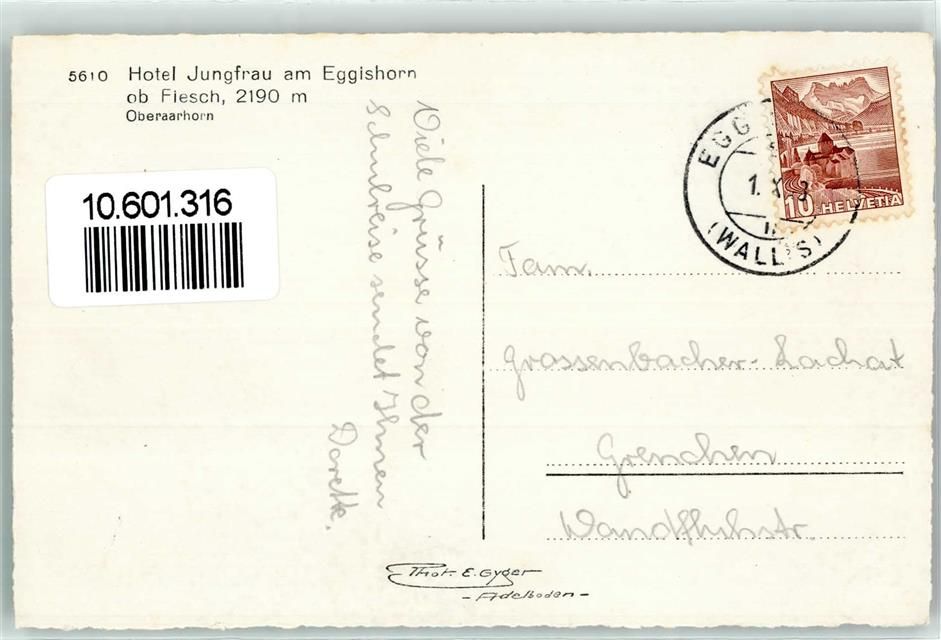 5610 Hotel Jungfrau am Eggishorn
ob Fiesch, 2190 m
Oberaarhorn
10.601.316
Viele Grüsse von der
Schulreise sendet Ihnen
Dorette.
EGG
1. X. 3
(WALLIS)
10 HELVETIA
Fam.
Grossenbacher-Lachat
Grenchen
Wandfluhstr.
Phot. E. Gyger
- Adelboden -